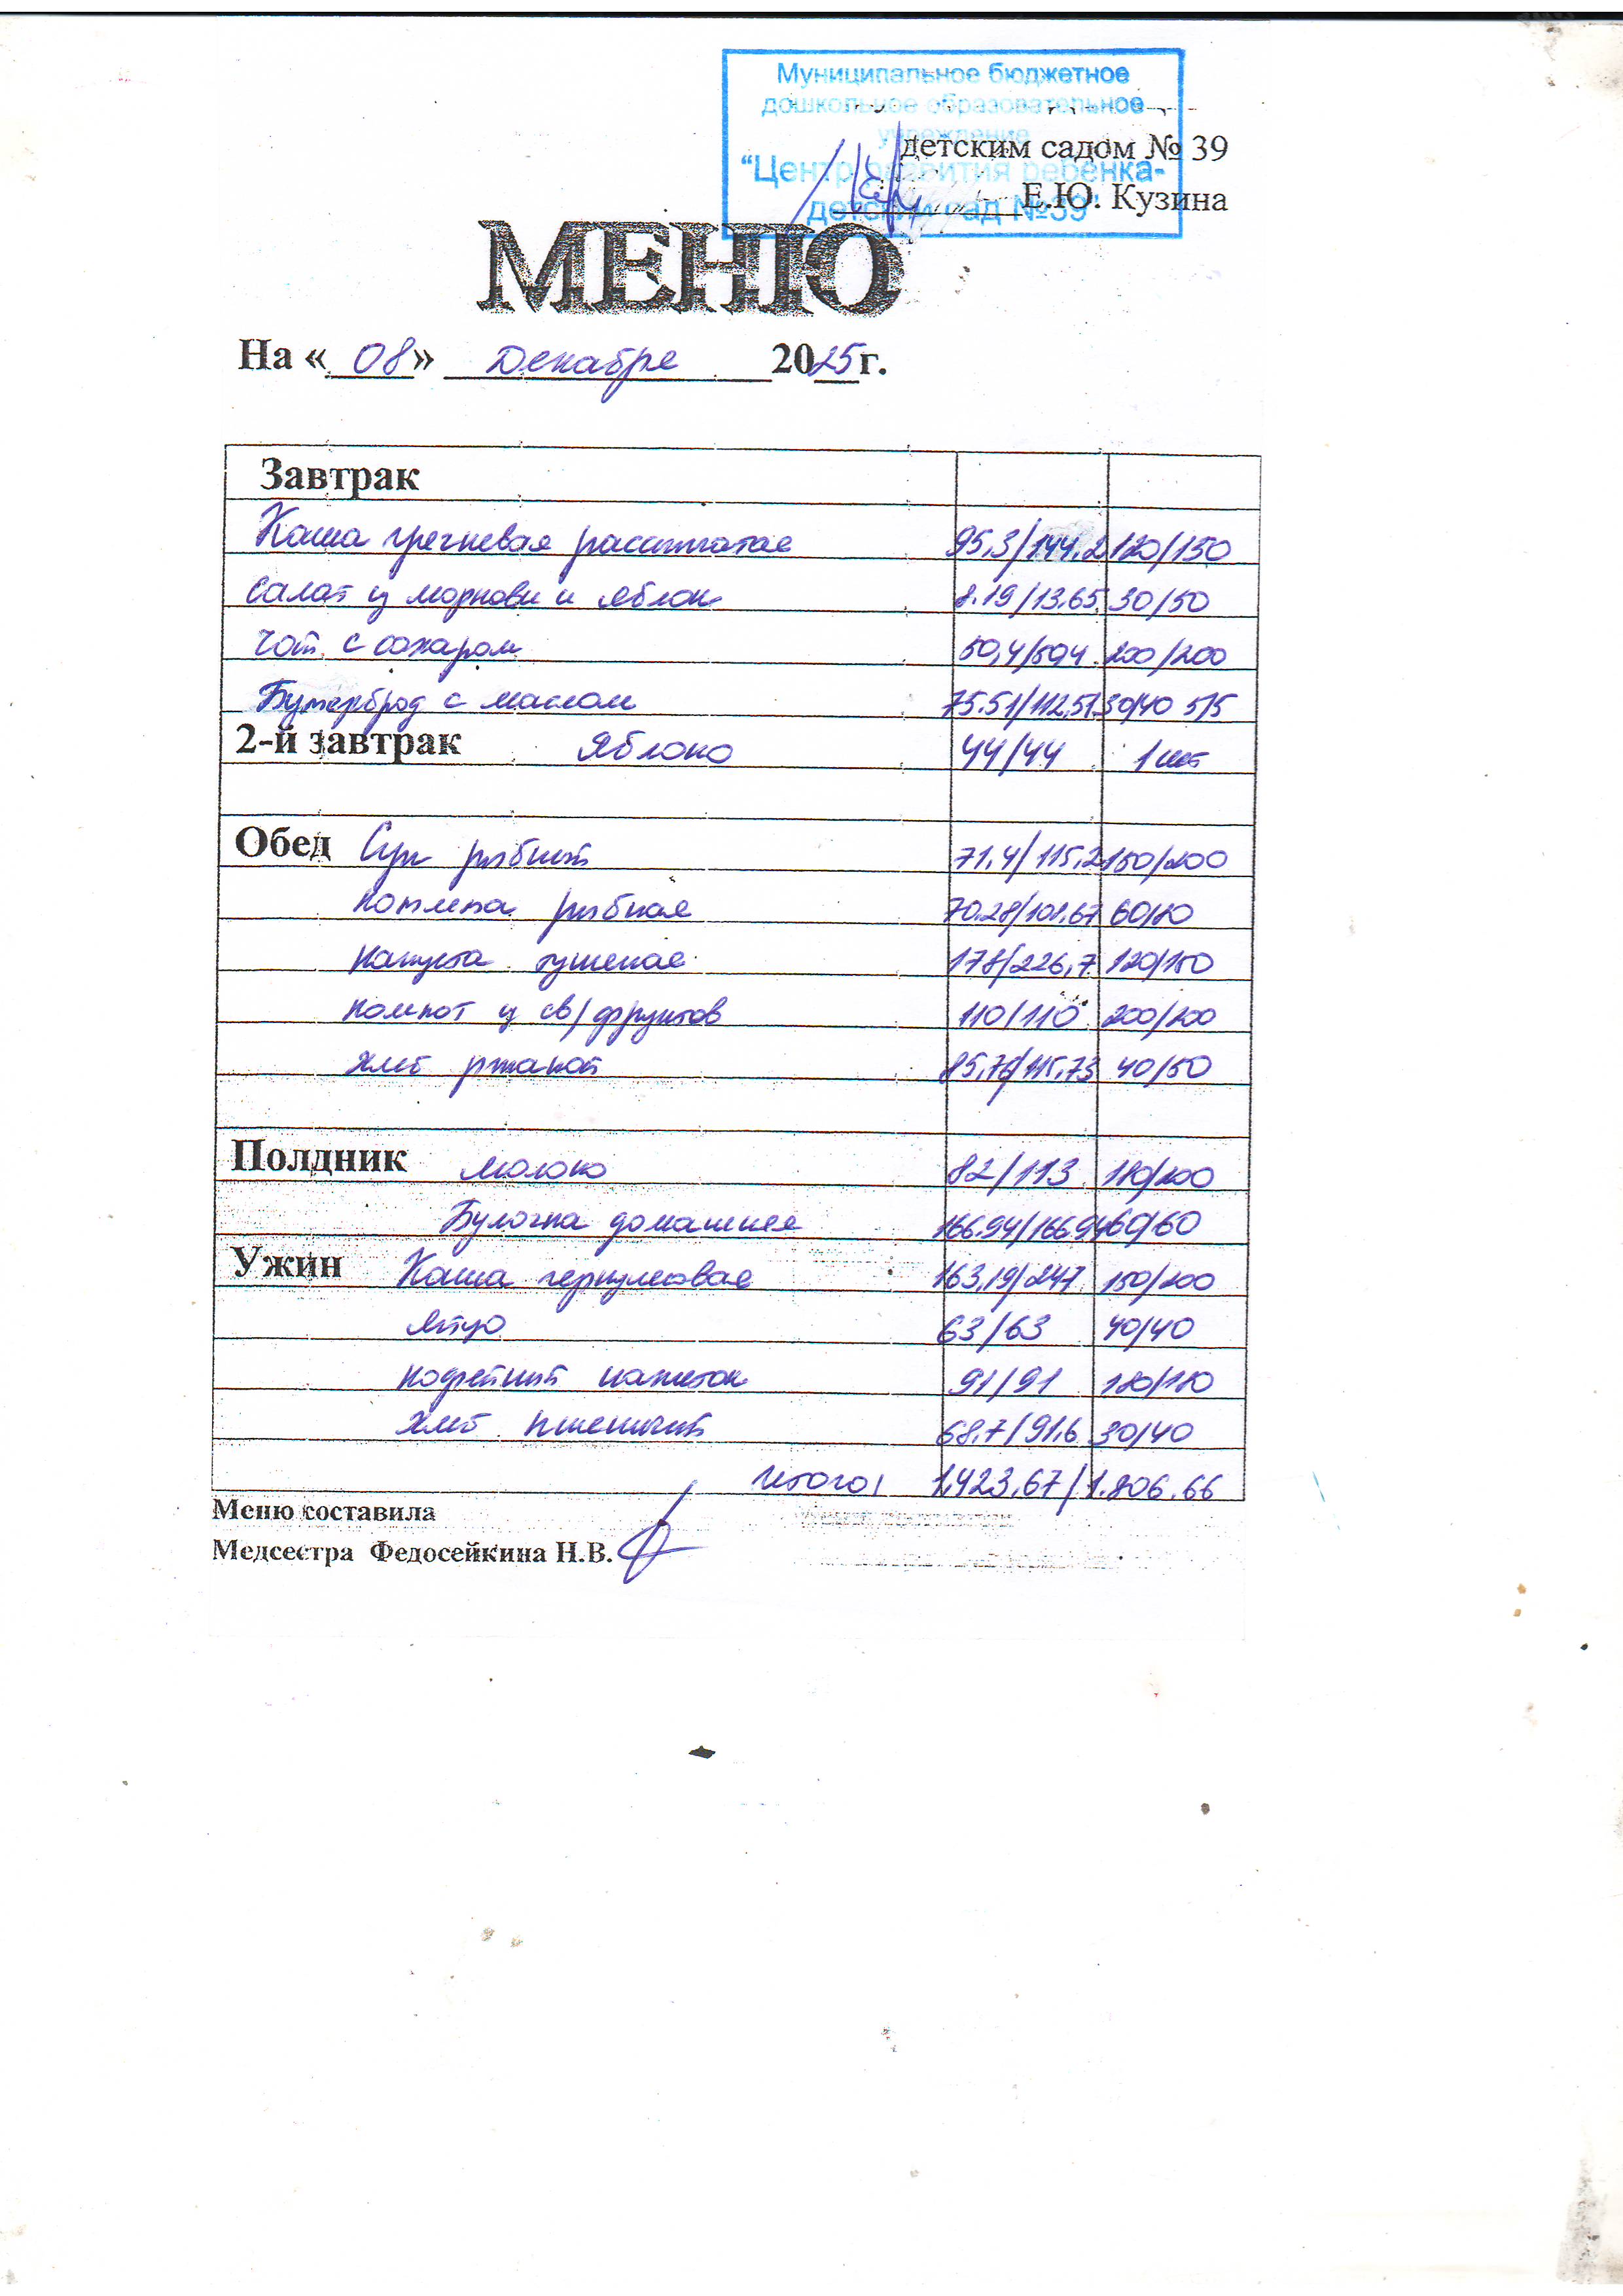 Муниципальное бюджетное
дошкольное образовательное
учреждение
детским садом № 39
“Центр развития ребенка-
Е.Ю. Кузина
детский сад №39”
МЕНЮ
На «08» Декабре 2025г.
Завтрак
Каша гречневая рассыпчатая 95,3/144.2 120/150
Салат из моркови и яблок 8.19/13.65 30/50
Чай с сахаром 50,4/50,4 200/200
Бутерброд с маслом 75.51/112,51 30/40 5/5
2-й завтрак Яблоко 44/44 1 шт
Обед Суп рыбный 71.4/115,2 150/200
Котлета рыбная 70.28/101.67 60/80
Капуста тушеная 178/226,7 120/150
Компот из св/фруктов 110/110 200/200
Хлеб ржаной 85,78/115,73 40/50
Полдник молоко 82/113 180/200
Булочка домашняя 166.94/166.94 60/60
Ужин Каша геркулесовая 163,19/247 150/200
Яйцо 63/63 40/40
Кофейный напиток 91/91 180/180
Хлеб пшеничный 68,7/91,6 30/40
Итого: 1.423,67/1.806.66
Меню составила
Медсестра Федосейкина Н.В.